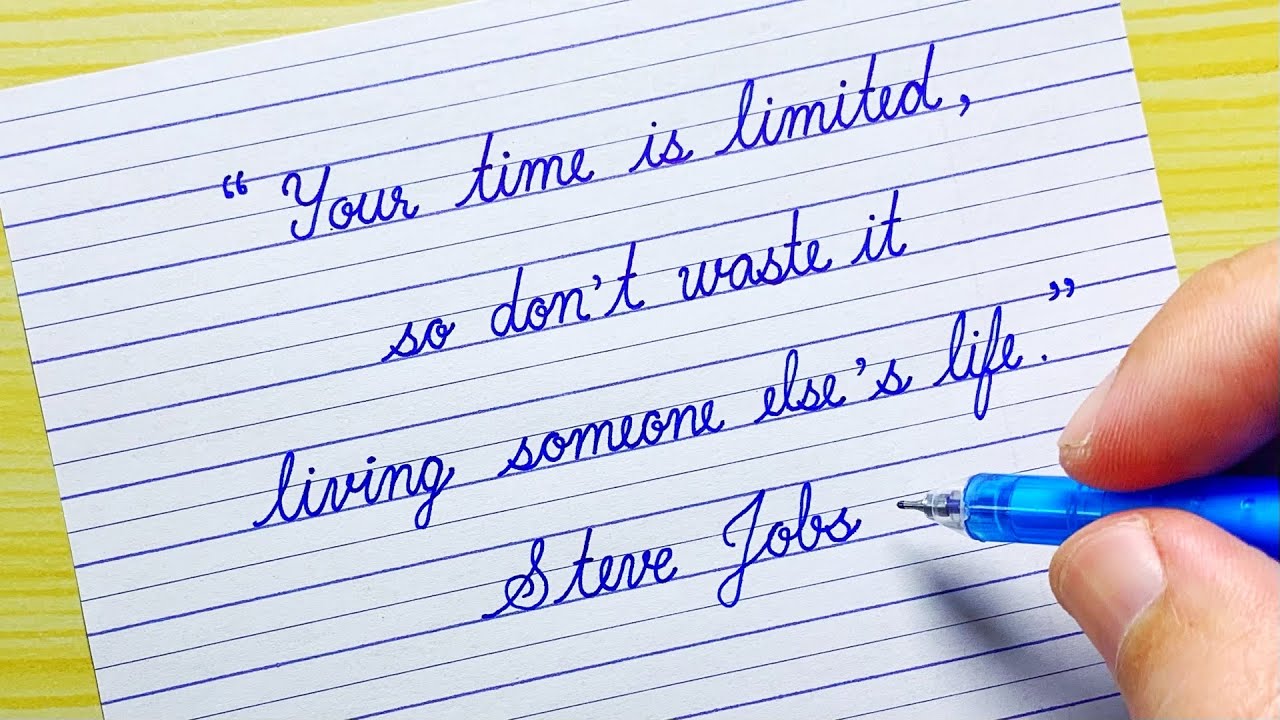 “Your time is limited,
so don’t waste it
living someone else’s life.”
Steve Jobs